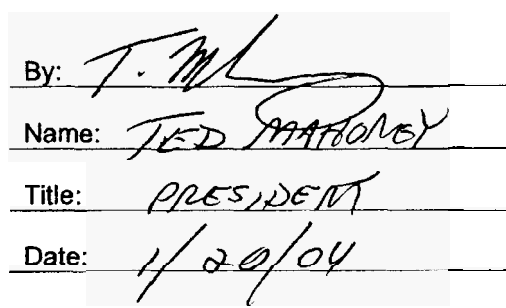 By: T. M
Name: TED MAHONEY
Title: PRESIDENT
Date: 1/20/04